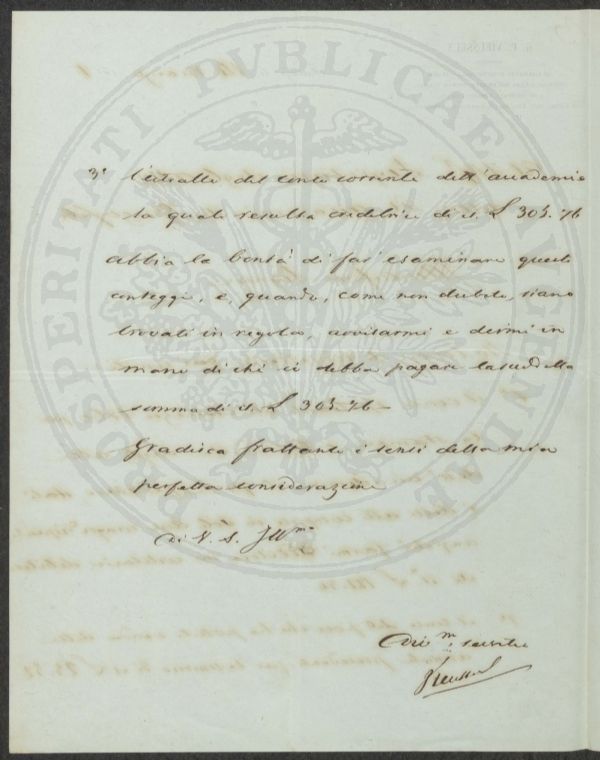 PROSPERITATI PVBLICAE AVGENDAE
G. P. VIEUSSEUX
3° l'estratto del conto corrente dell'accademia
la quale resulta creditrice di it. £ 305.76
abbia la bontà di far esaminare questi
conteggi, e, quando, come non dubito, siano
trovati in regola, avvisarmi e dirmi in
mano di chi si debba pagare la suddetta
somma di it. £ 305.76 —
Gradisca frattanto i sensi della mia
perfetta considerazione
Di V. S. Ill.ma
Dev.m servitore
Vieusseux